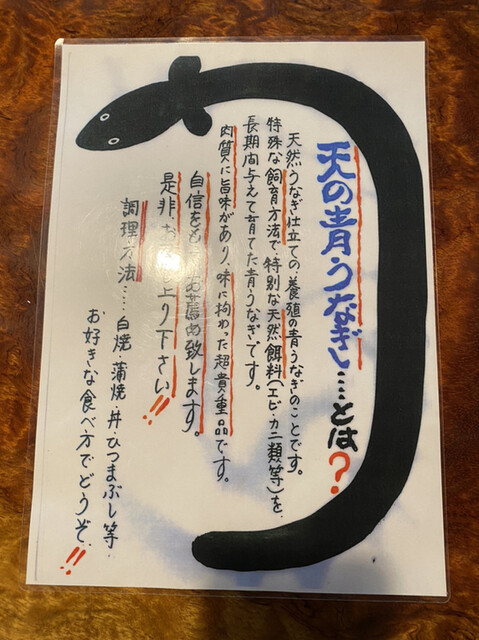 天の青うなぎ…とは?
天然うなぎ仕立ての、養殖の青うなぎのことです。
特殊な飼育方法で、特別な天然餌料(エビ・カニ類等)を、
長期間与えて育てた青うなぎです。
肉質に旨味があり、味に拘わった超貴重品です。
自信をも お薦め致します。
是非、お 上り下さい!!
調理方法…白焼・蒲焼・丼・ひつまぶし等・
お好きな食べ方でどうぞ!!